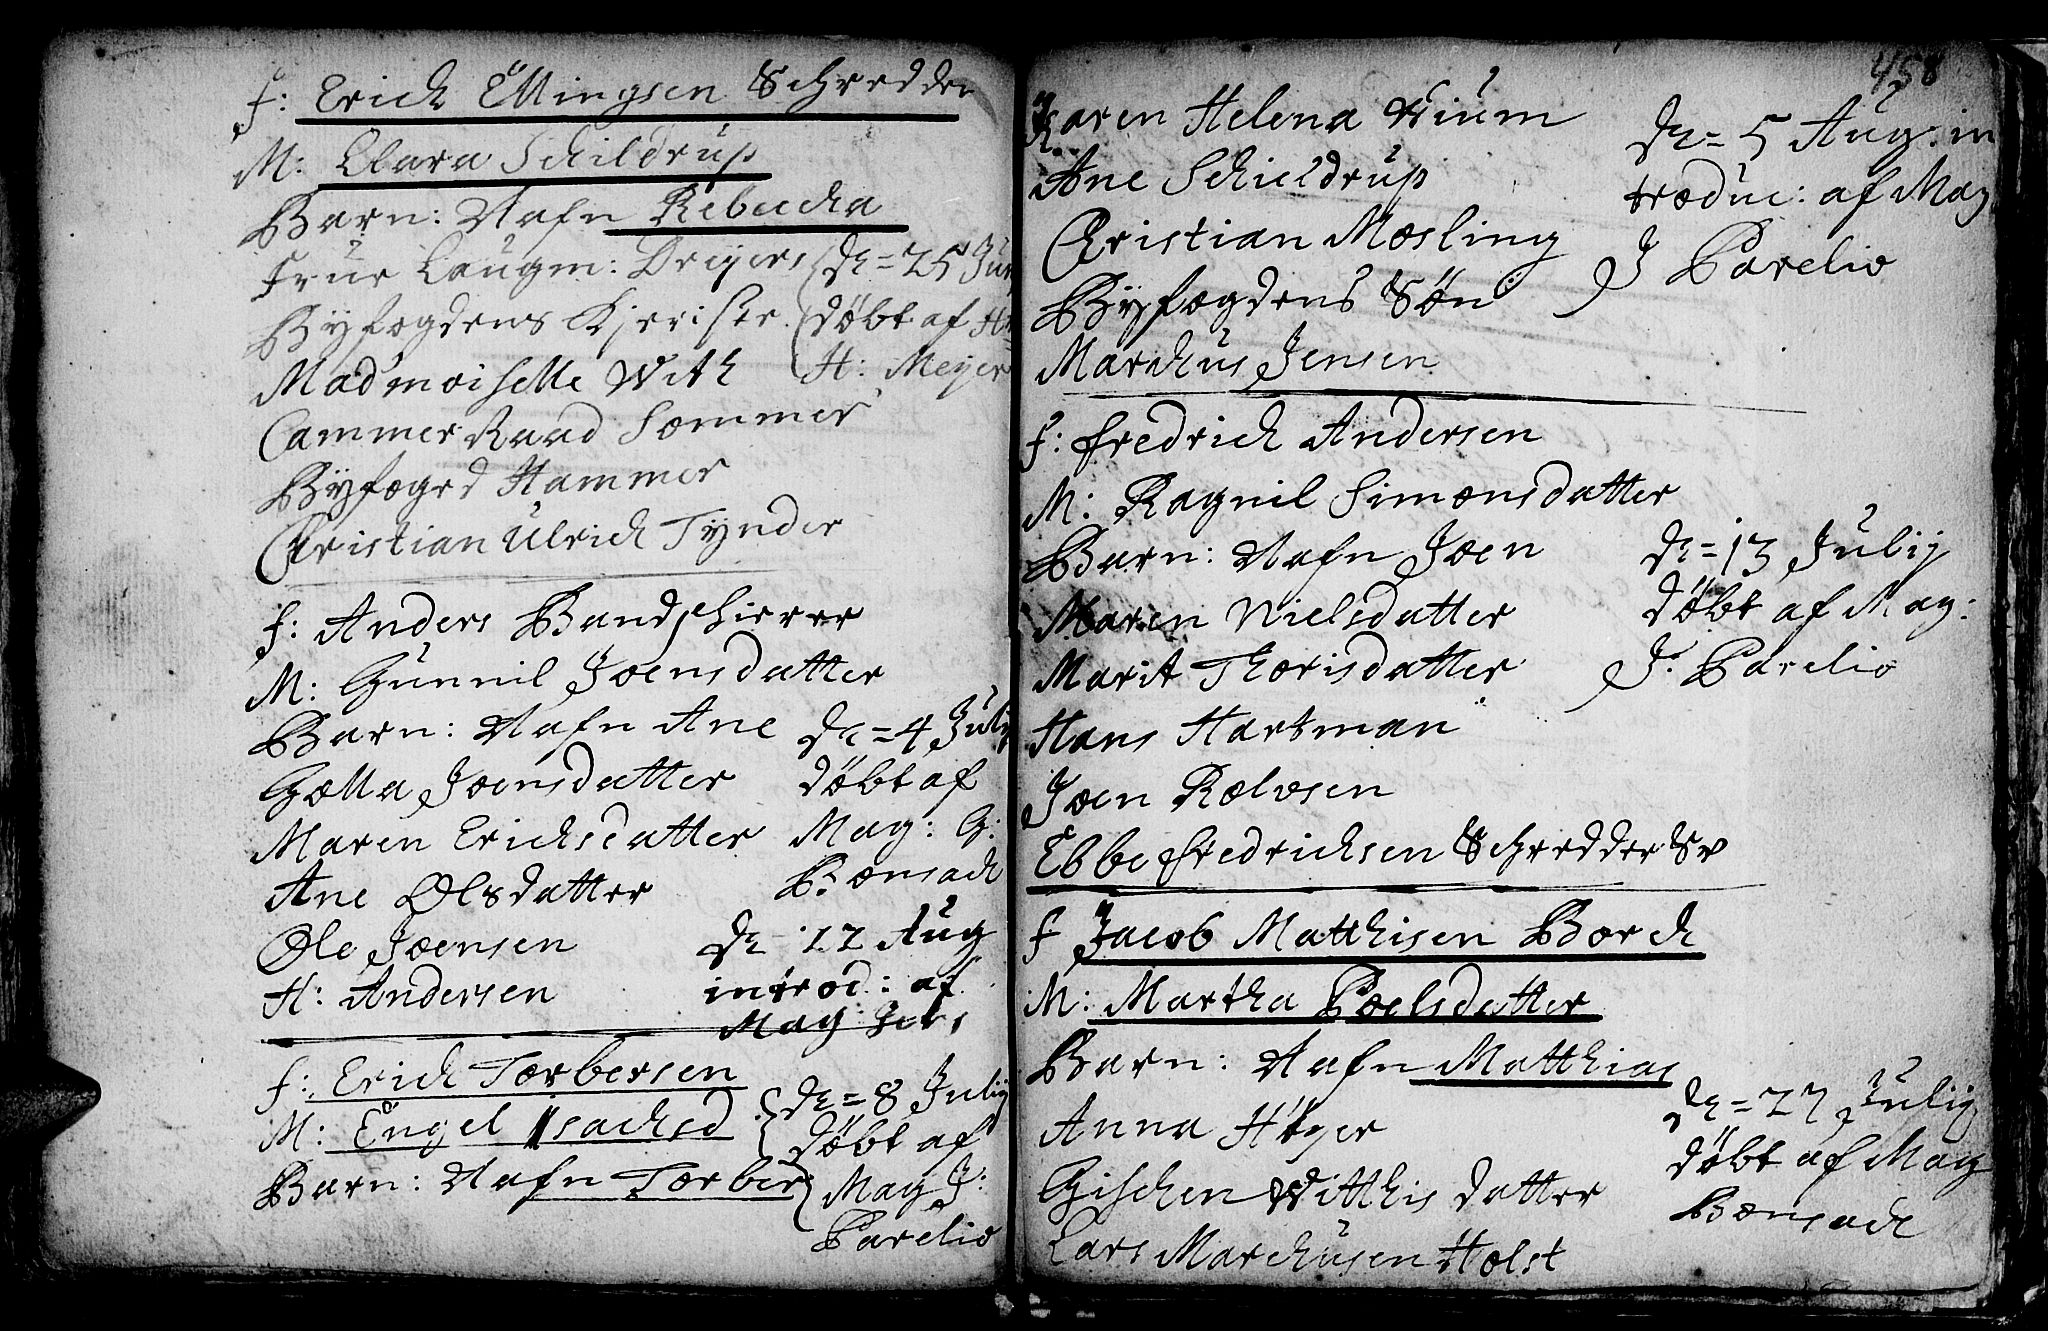 f: Erich Ellingsen Schredder
M: Clara Schildrup
Barn: Nafn Rebecha
Frue Laugm: Dreyers
Byfogdens Kjeriste
Madmoiselle With
Cammer Raad Sommer
Byfoged Hammer
Christian Ulrich Tynder
dn = 25 Jun
døbt af Hr
H: Meyer
f: Anders Bandschierer
M: Gunnil Joensdatter
Barn: Nafn Ane
Golla Joensdatter
Maren Erichsdatter
Ane Olsdatter
Ole Joensen
H: Andersen
dn = 4 Julij
døbt af
Mag: G:
Bonsach
dn 12 Aug
introd: af
Mag Jers
f: Erich Torbersen
M: Engel Isachsd
Barn: Nafn Torber
dn = 8 Julij
døbt af
Mag J:
Parelio
458
Karen Helena Wium
Ane Schieldrup
Christian Mosling
Byfogdens Søn
Marchus Jensen
dn = 5 Aug: in
troduc: af Mag
J Parelio
f: Fredrich Andersen
M: Ragnil Simonsdatter
Barn: Nafn Joen
Maren Nielsdatter
Marit Thorisdatter
Hans Hartman
Joen Rolvsen
Ebbe Fredrichsen Schredder Sv
dn = 13 Julij
døbt af Mag:
J: Parelio
f Jacob Matthisen Borch
M: Martha Poelsdatter
Barn: Nafn Matthias
Anna Höyer
Gischen Witthis datter
Lars Marchusen Holst
dn = 27 Julij
døbt af Mag
Bonsach